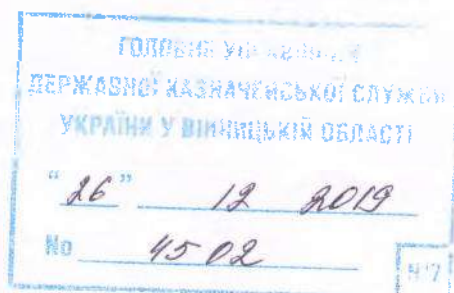 ГОЛОВНЕ УПРАВЛІННЯ
ДЕРЖАВНОЇ КАЗНАЧЕЙСЬКОЇ СЛУЖБИ
УКРАЇНИ У ВІННИЦЬКІЙ ОБЛАСТІ
"26" 12 2019
№ 4502
№7